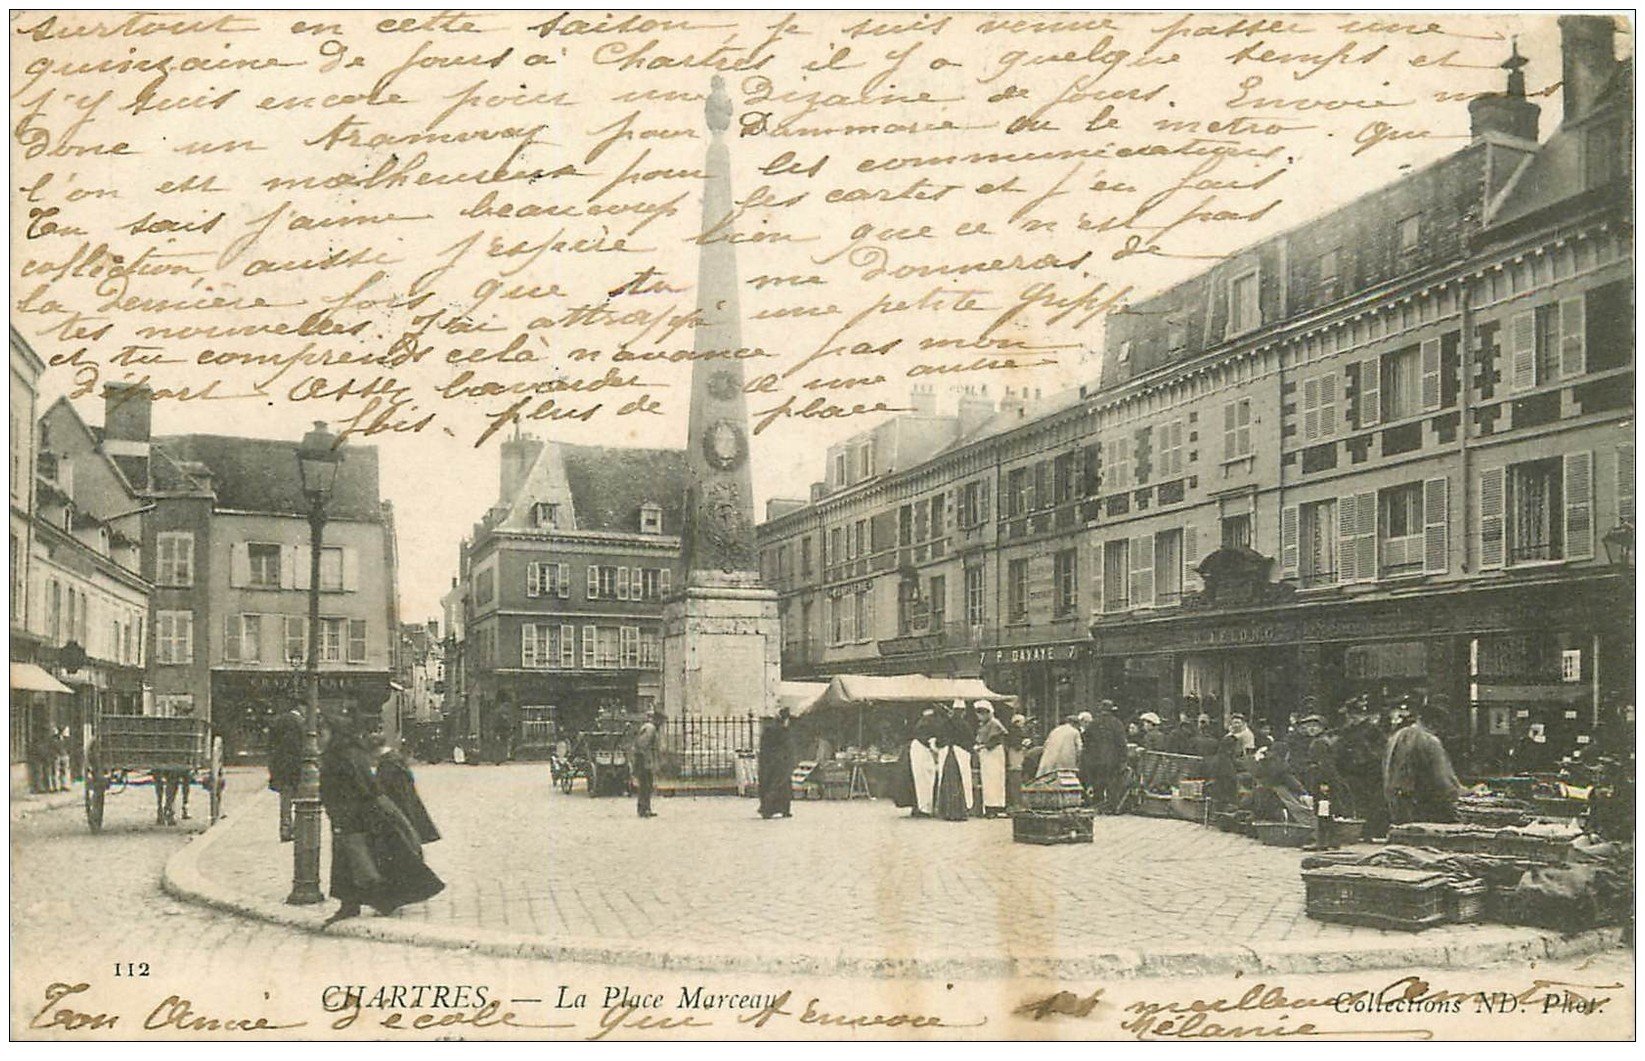 surtout en cette saison, je suis venue passer une
quinzaine de jours à Chartres il y a quelque temps et
j'y suis encore pour une Dizaine de jours. Envoie nous
donc un tramway pour Dammarie ou le metro. Que
l'on est malheureux pour les communications.
Tu sais j'aime beaucoup les cartes et j'en fais
collection, aussi j'espère bien que ce n'est pas
la dernière fois que tu me donneras de
tes nouvelles. J'ai attrapé une petite grippe
et tu comprends celà n'avance pas mon
départ. Assez bavarder à une autre
fois. plus de place
7 P. DAVAYE 7
112
CHARTRES. — La Place Marceau
Collections ND. Phot.
Ton Amie d'école qui t'envoie ses meilleures Amitiés
Mélanie